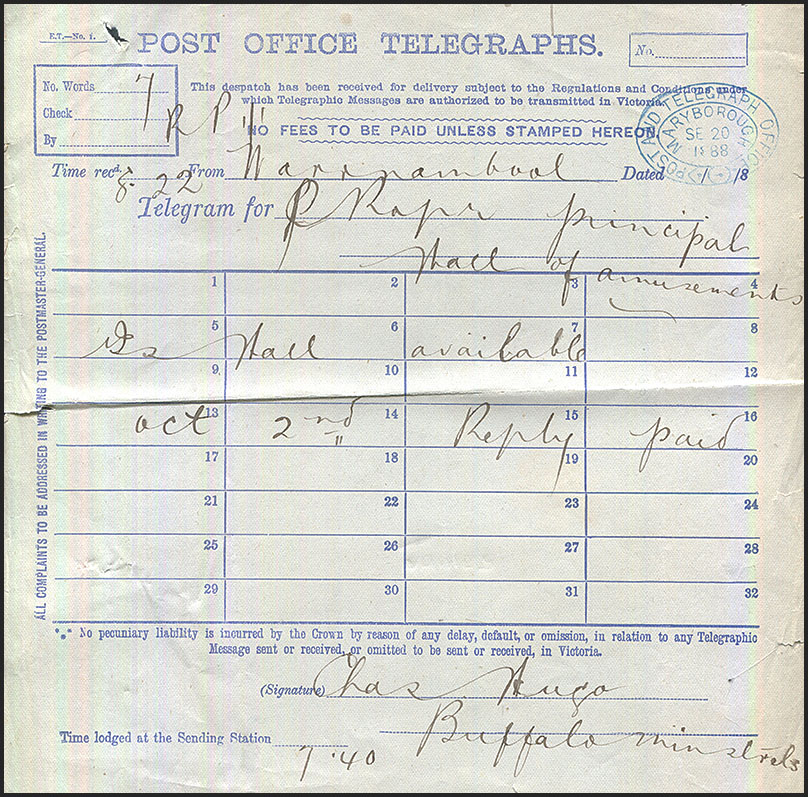 E.T.—No. 1.
POST OFFICE TELEGRAPHS.
No.
No. Words 7
Check
By
R P
This despatch has been received for delivery subject to the Regulations and Conditions under
which Telegraphic Messages are authorized to be transmitted in Victoria.
NO FEES TO BE PAID UNLESS STAMPED HEREON.
POST AND TELEGRAPH OFFICE
MARYBOROUGH
SE 20
88
Time recd. 8.22 From Warrnambool Dated / /8
Telegram for P principal
Hall of amusements
1 2 3 4
5 6 7 8
Is Hall available
9 10 11 12
13 14 15 16
oct 2nd Reply paid
17 18 19 20
21 22 23 24
25 26 27 28
29 30 31 32
ALL COMPLAINTS TO BE ADDRESSED IN WRITING TO THE POSTMASTER-GENERAL.
*** No pecuniary liability is incurred by the Crown by reason of any delay, default, or omission, in relation to any Telegraphic
Message sent or received, or omitted to be sent or received, in Victoria.
(Signature) Chas Hugo
Buffalo minstrels
Time lodged at the Sending Station
7.40